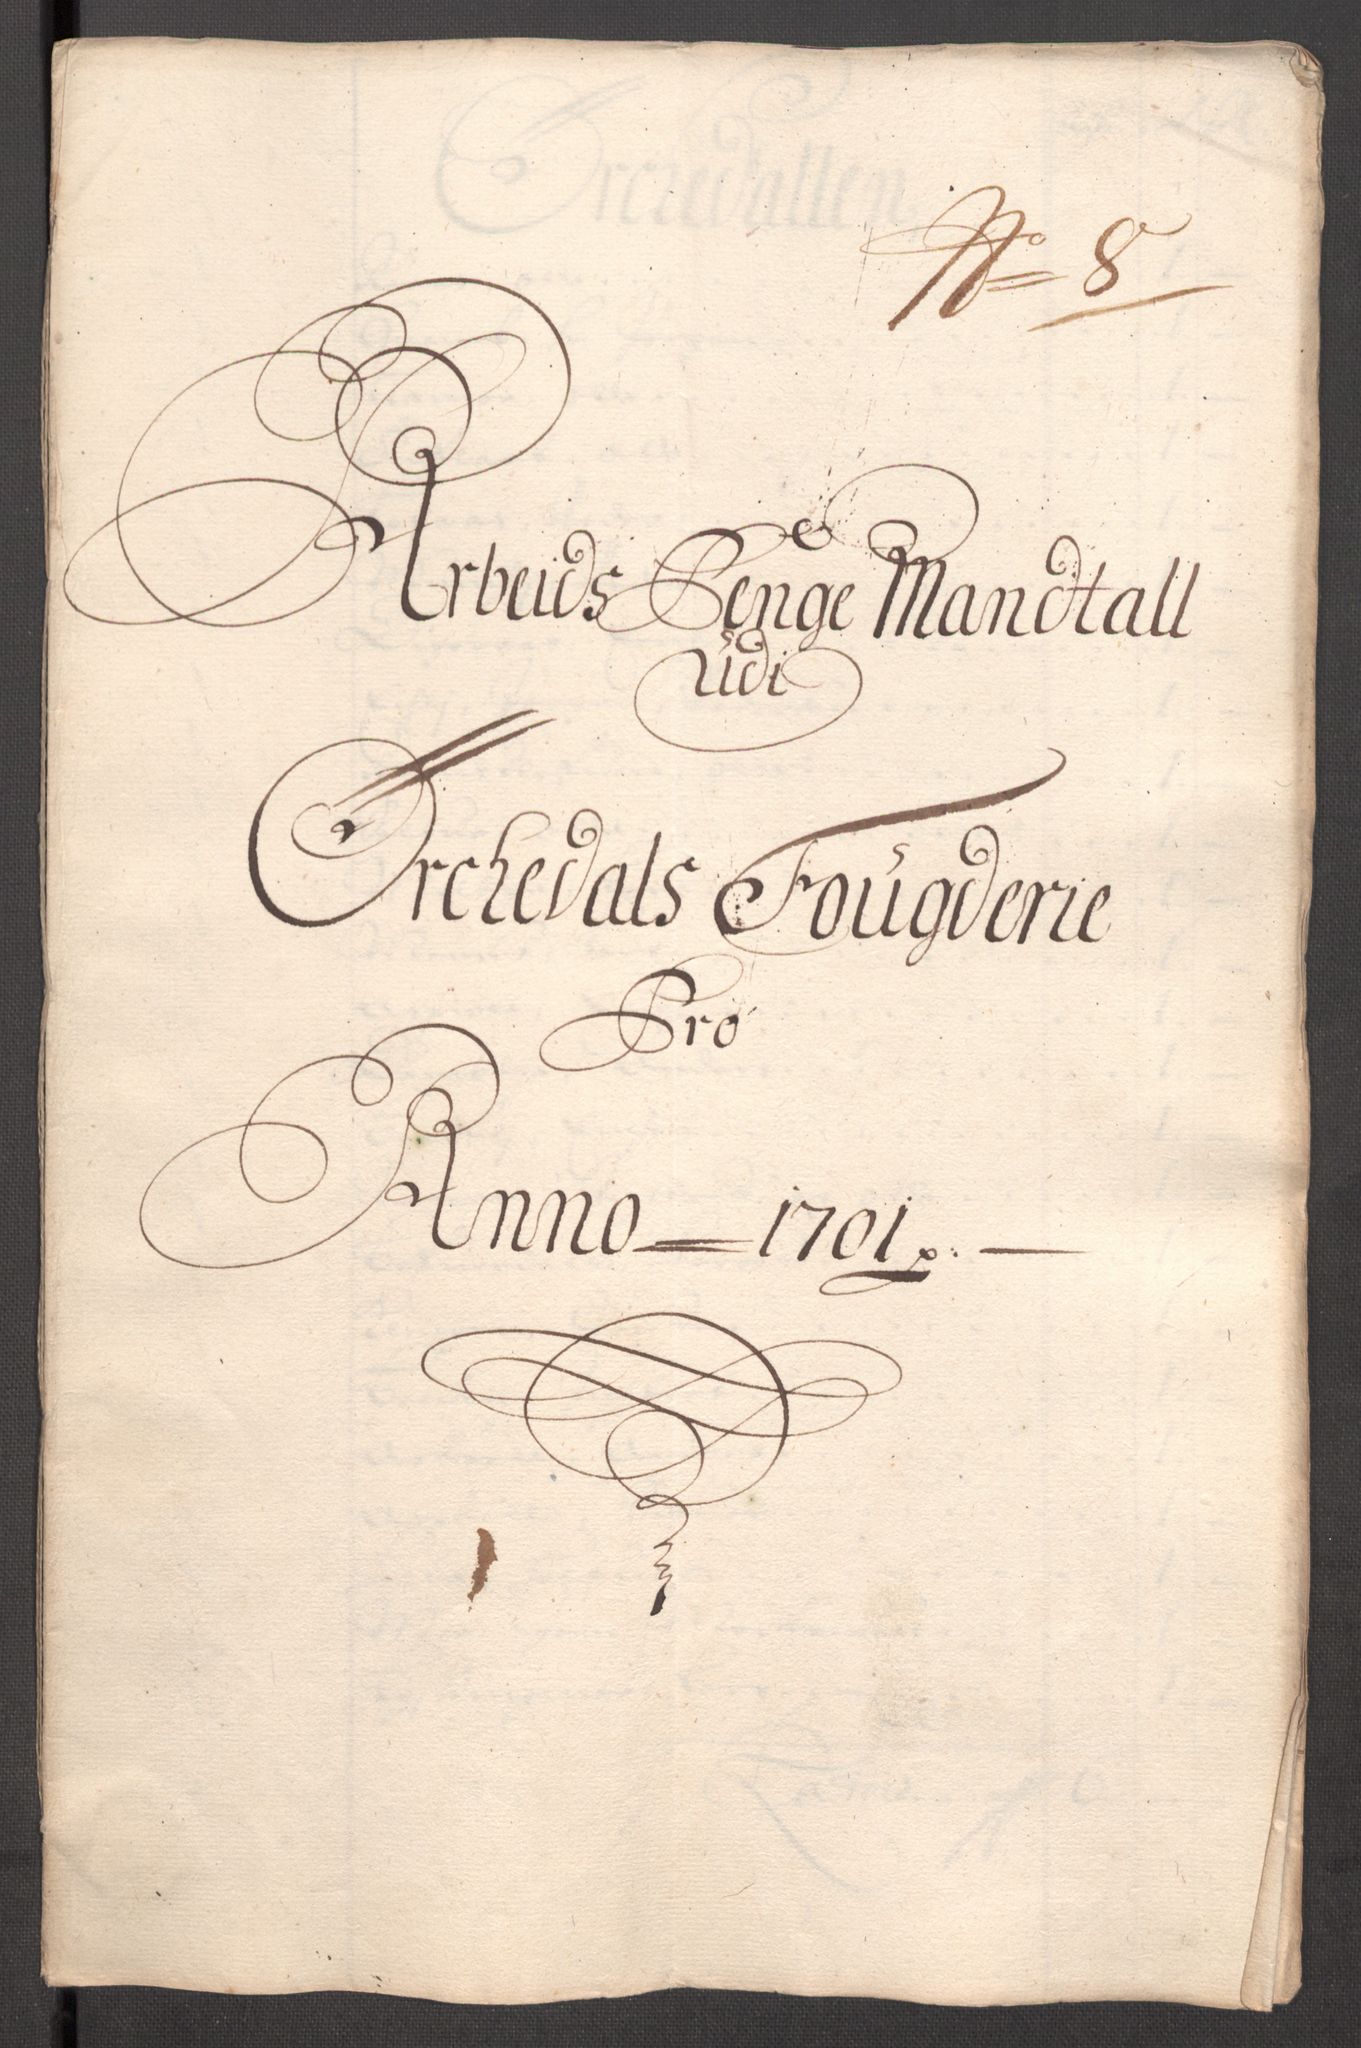 No 8
Arbeids Penge Mandtall
udi
Orchedals Fougderie
Pro
Anno 1701